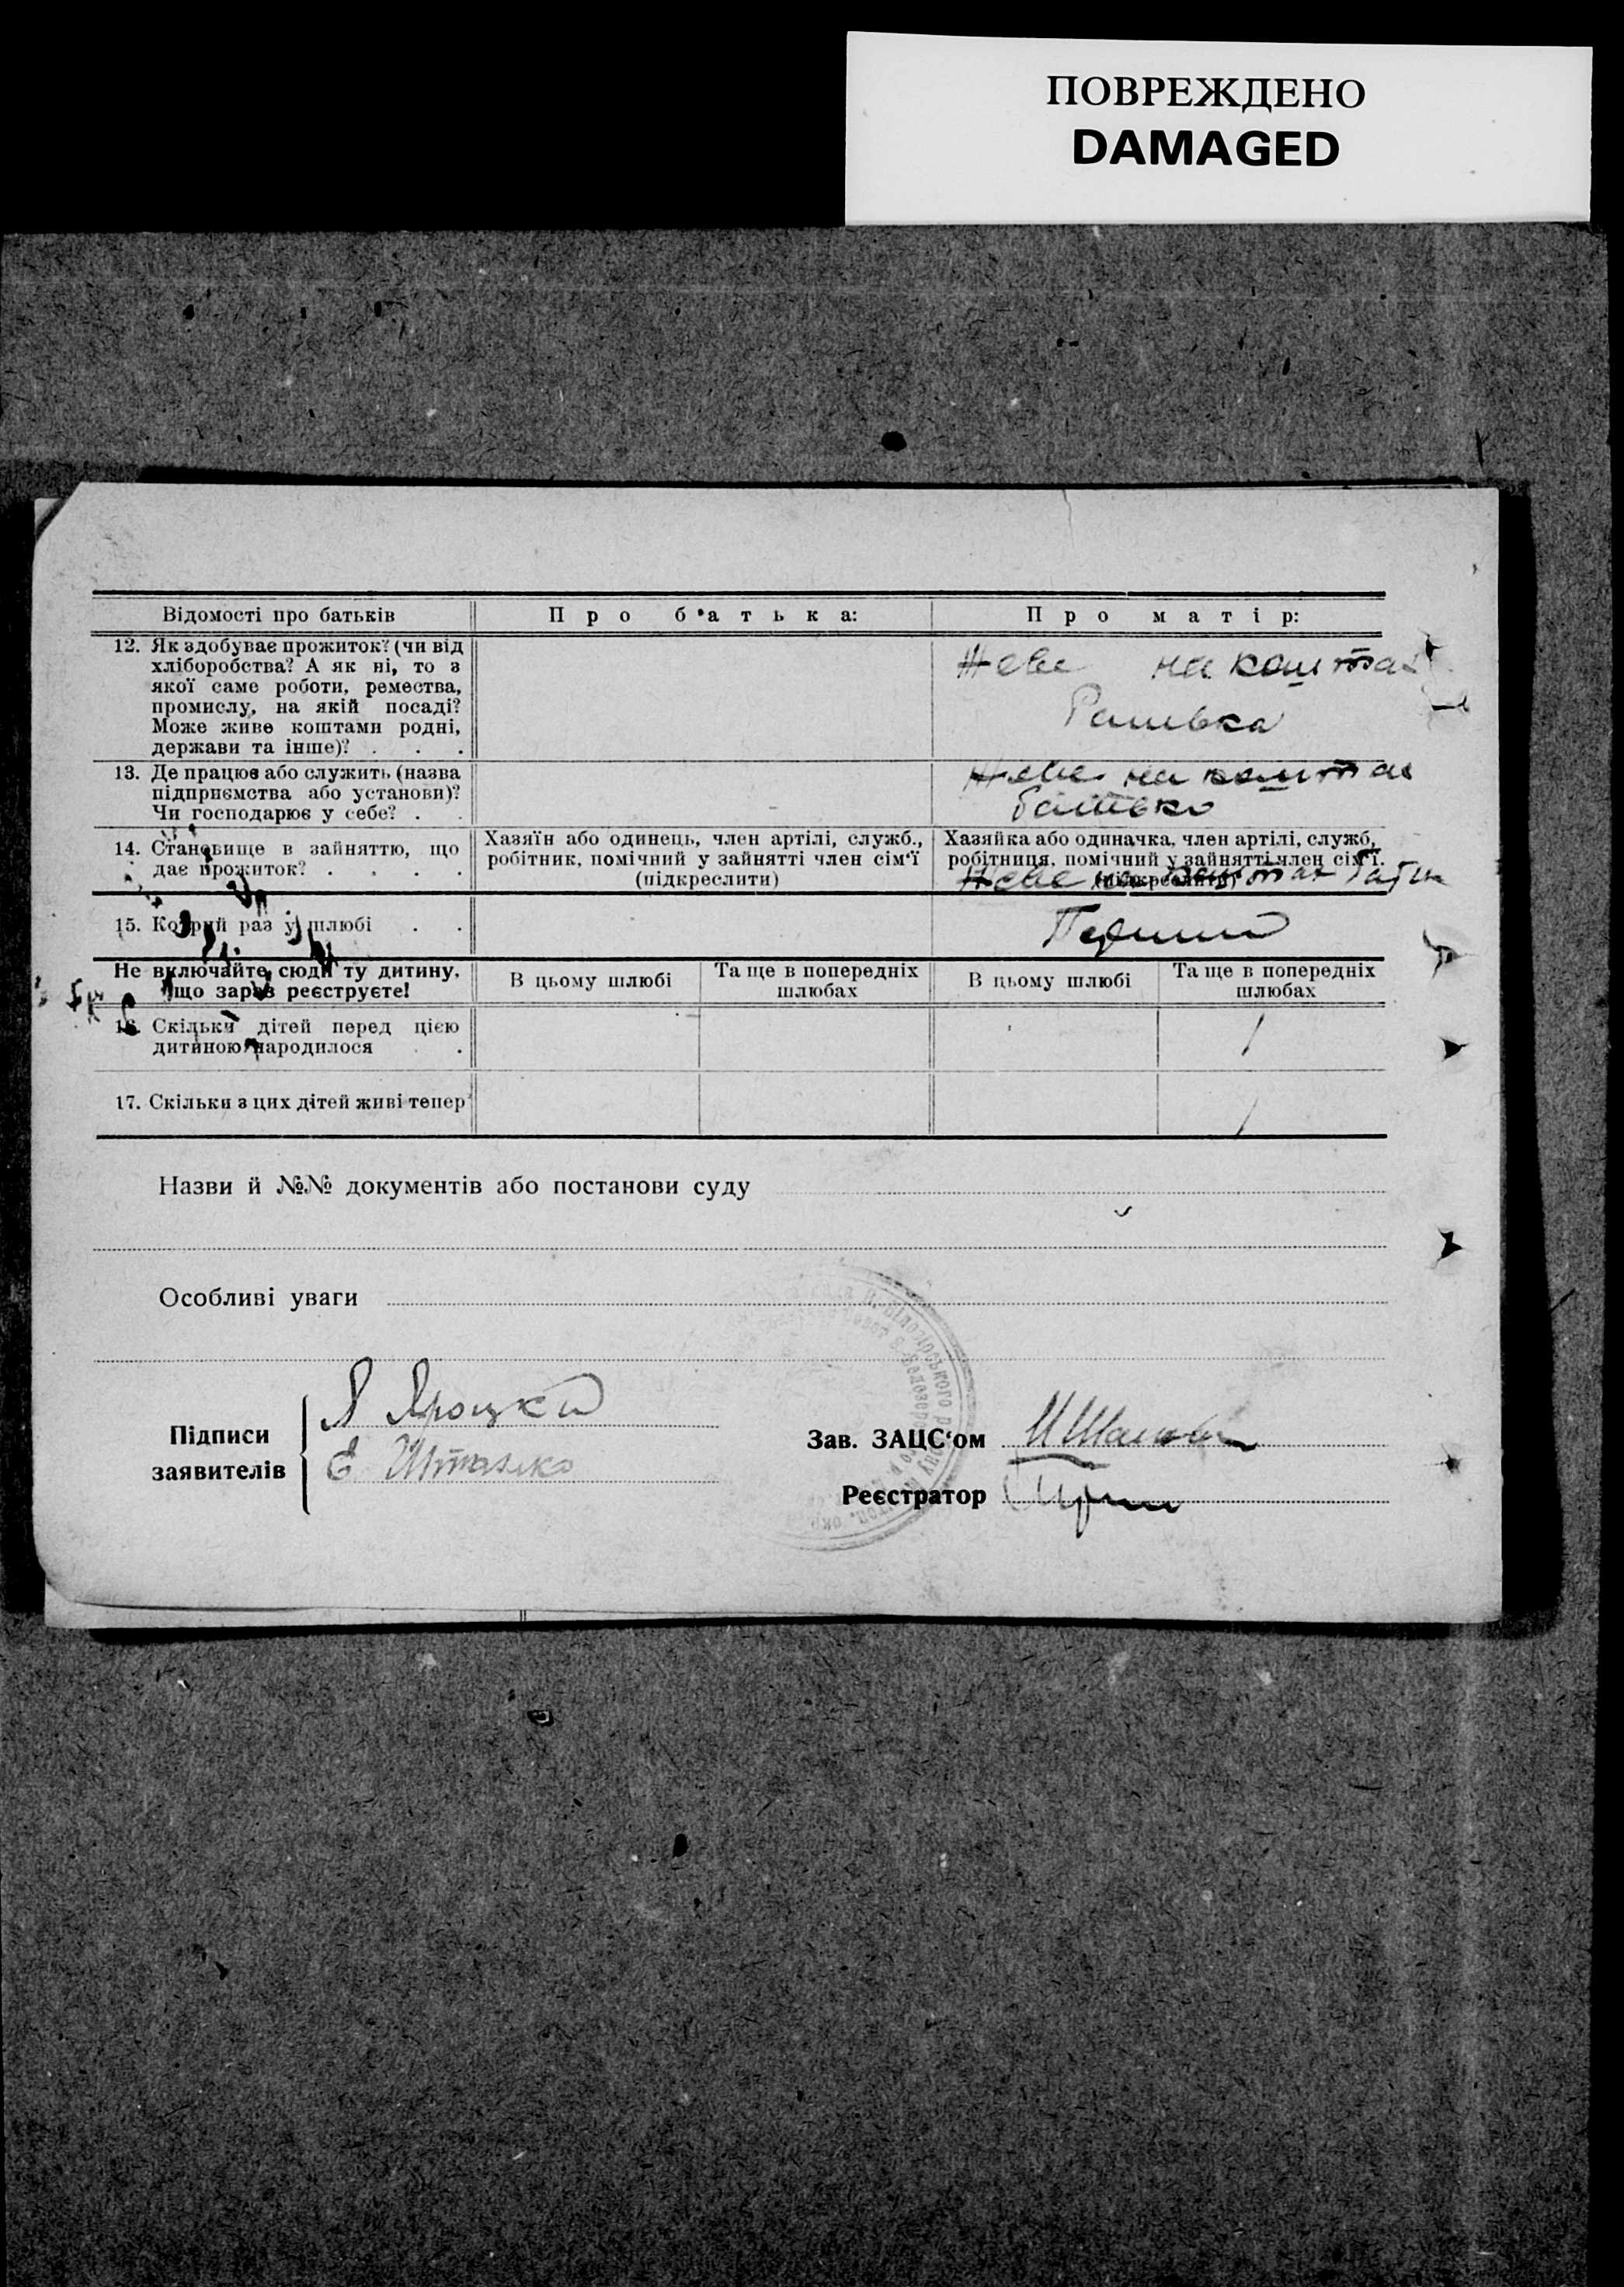 ПОВРЕЖДЕНО
DAMAGED
Відомості про батьків
Про батька:
Про матір:
12. Як здобуває прожиток? (чи від
хліборобства? А як ні, то з
якої саме роботи, ремества,
промислу, на якій посаді?
Може живе коштами родні,
держави та інше)? . . .
Жеве на коштах
Батька
13. Де працює або служить (назва
підприємства або установи)?
Чи господарює у себе? . .
Жеве на коштах
батько
14. Становище в зайняттю, що
дає прожиток? . . . .
Хазяїн або одинець, член артілі, служб.,
робітник, помічний у зайнятті член сім'ї
(підкреслити)
Хазяйка або одиначка, член артілі, служб,
робітниця, помічний у зайнятті член сім'ї.
(підкреслити)
Жеве на коштах
15. Котрий раз у шлюбі . .
Перший
Не включайте сюди ту дитину,
що зараз реєструєте!
В цьому шлюбі
Та ще в попередніх
шлюбах
В цьому шлюбі
Та ще в попередніх
шлюбах
16. Скільки дітей перед цією
дитиною народилося . .
1
17. Скільки з цих дітей живі тепер
1
Назви й №№ документів або постанови суду
Особливі уваги
Підписи
заявителів
Я Яроцкій
Е
Зав. ЗАЦС'ом
Реєстратор